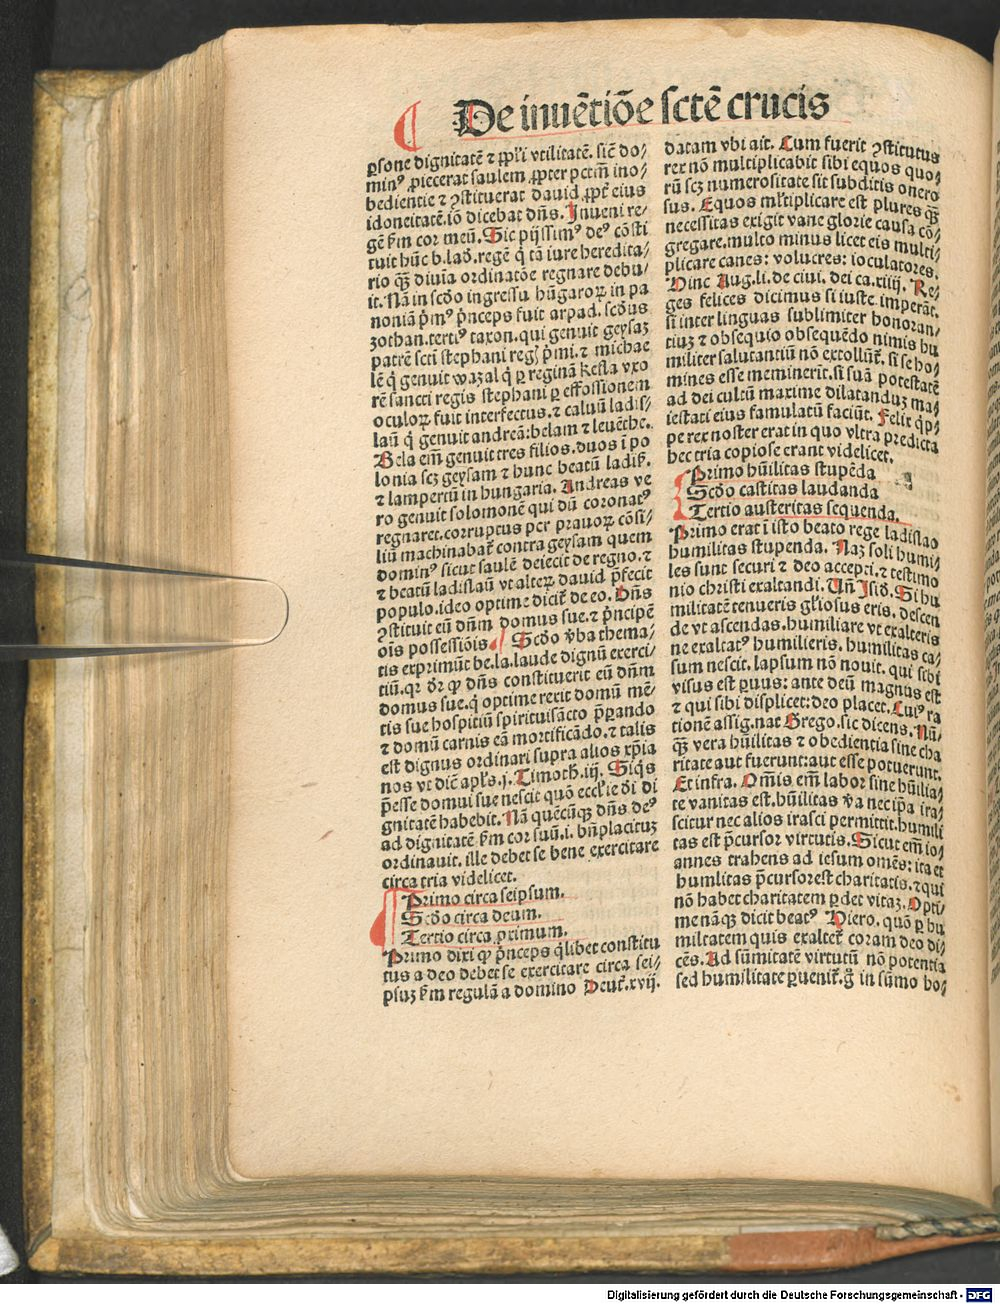 De inuētiōe sctē crucis
ꝑsone dignitatē ⁊ ꝓpꝛi vtilitatē. sic̄ do⸗
minꝰ ꝓiecerat saulem ꝓpter pctm̄ ino⸗
bedientie ⁊ ꝯstituerat dauid ꝓpt̄ eius
idoneitatē. iō dicebat dn̄s. Inueni re⸗
gē ẜm cor meū. Sic pijssimꝰ deꝰ cōsti
tuit hūc b. lad̄. regē q̇ tā iure heredita⸗
rio q̄ꝫ diuīa ordinatōe regnare debu⸗
it. Nā in scd̄o ingressu hūgaroꝝ in pa
noniā p̄mꝰ p̄nceps fuit arpad. scd̄us
zothan. tertiꝰ taxon. qui genuit geysaꝫ
patrē scti stephani regꝭ p̄mi. ⁊ michae
lē q̇ genuit wazal q̇ ꝑ reginā kesla vxo
rē sancti regis stephani ꝑ effossionem
oculoꝝ fuit interfectus. ⁊ caluū ladis⸗
laū q̇ genuit andreā: belam ⁊ leuēthe.
Bela em̄ genuit tres filios. duos ī po
lonia scꝫ geysam ⁊ hunc beatū ladiß.
⁊ lampertū in hungaria. Andreas ve
ro genuit solomonē qui dū coronatꝰ
regnaret. corruptus per prauoꝝ cōsi⸗
liū machinabat̄ contra geysam quem
dominꝰ sicut saulē deiecit de regno. ⁊
⁊ beatū ladislaū vt alteꝝ dauid p̄fecit
populo. ideo optime dicit̄ de eo. Dn̄s
ꝯstituit eū dn̄m domus sue. ⁊ p̄ncipē
ois possessiōis. Scd̄o v̄ba thema⸗
tis exprimūt be. la. laude dignū exerci⸗
tiū. qꝛ dr̄ ꝙ dn̄s constituerit eū dn̄m
domus sue. q̇ optime rexit domū mē⸗
tis sue hospitiū spirituisācto p̄parando
⁊ domū carnis eā mortificādo. ⁊ talis
est dignus ordinari supra alios xp̄ia
nos vt dic̄ apl̄s. j. Timoth. iij. Siq̇s
p̄esse domui sue nescit quō eccl̄ie dī di
gnitatē habebit. Nā quēcūqꝫ dn̄s deꝰ
ad dignitatē ẜm cor suū. i. bn̄placituꝫ
ordinauit. ille debet se bene exercitare
circa tria videlicet.
Primo circa seipsum.
Scd̄o circa deum.
Tertio circa ꝓximum.
Primo dixi ꝙ p̄nceps q̇libet constitu
tus a deo debet se exercitare circa sei⸗
psuꝫ ẜm regulā a domino Deut̄. xvij.
datam vbi ait. Cum fuerit ꝯstitutus
rex nō multiplicabit sibi equos quo⸗
rū scꝫ numerositate sit subditis onero
sus. Equos ml̄tiplicare est plures q̄ꝫ
necessitas exigit vane glorie causa cō⸗
gregare. multo minus licet eis multi⸗
plicare canes: volucres: ioculatores.
Hinc Aug. li. de ciui. dei ca. xiiij. Re⸗
ges felices dicimus si iuste imperāt.
si inter linguas sublimiter honoran⸗
tiuꝫ ⁊ obsequio obsequēdo nimis hu
militer salutantiū nō extollūt̄. si se ho⸗
mines esse meminerit. si suā potestatē
ad dei cultū maxime dilatanduꝫ ma⸗
iestati eius famulatū faciūt. Felix q̇p⸗
pe rex noster erat in quo vltra predicta
hec tria copiose erant videlicet.
Primo hūilitas stupēda
Scd̄o castitas laudanda
Tertio austeritas sequenda.
Primo erat ī isto beato rege ladislao
humilitas stupenda. Naꝫ soli humi⸗
les sunt securi ⁊ deo accepti. ⁊ testimo
nio christi exaltandi. Un̄ Isid̄. Si hu
militatē tenueris gl̄iosus eris. descen
de vt ascendas. humiliare vt exalteris
ne exaltatꝰ humilieris. humilitas ca⸗
sum nescit. lapsum nō nouit. qui sibi
visus est ꝑuus: ante deū magnus est
⁊ qui sibi displicet: deo placet. Cuiꝰ ra
tionē assignat Grego. sic dicens. Nū⸗
q̄ꝫ vera hūilitas ⁊ obedientia sine cha
ritate aut fuerunt: aut esse potuerunt.
Et infra. Om̄is em̄ labor sine hūilia⸗
te vanitas est. hūilitas v̄a nec ip̄a ira⸗
scitur nec alios irasci permittit. humili
tas est p̄cursor virtutis. Sicut em̄ io⸗
annes trahens ad iesum omēs: ita et
humlitas p̄cursor est charitatis. ⁊ qui
nō habet charitatem ꝑdet vitaꝫ. Opti⸗
me nāqꝫ dicit beatꝰ Hiero. quō ꝑ hu
miltatem quis exaltet̄ coram deo di⸗
cēs. Ad sūmitatē virtutū nō potentia
sed humilitate ꝑuenit̄. g̊ in sūmo ho⸗
Digitalisierung gefördert durch die Deutsche Forschungsgemeinschaft - DFG